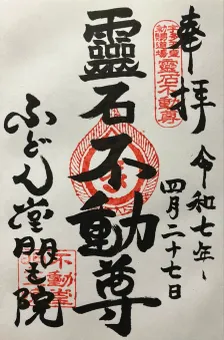 奉拝
令和七年
四月二十七日
靈石不動尊
靈石不動尊
ふどん堂明王院
不動堂